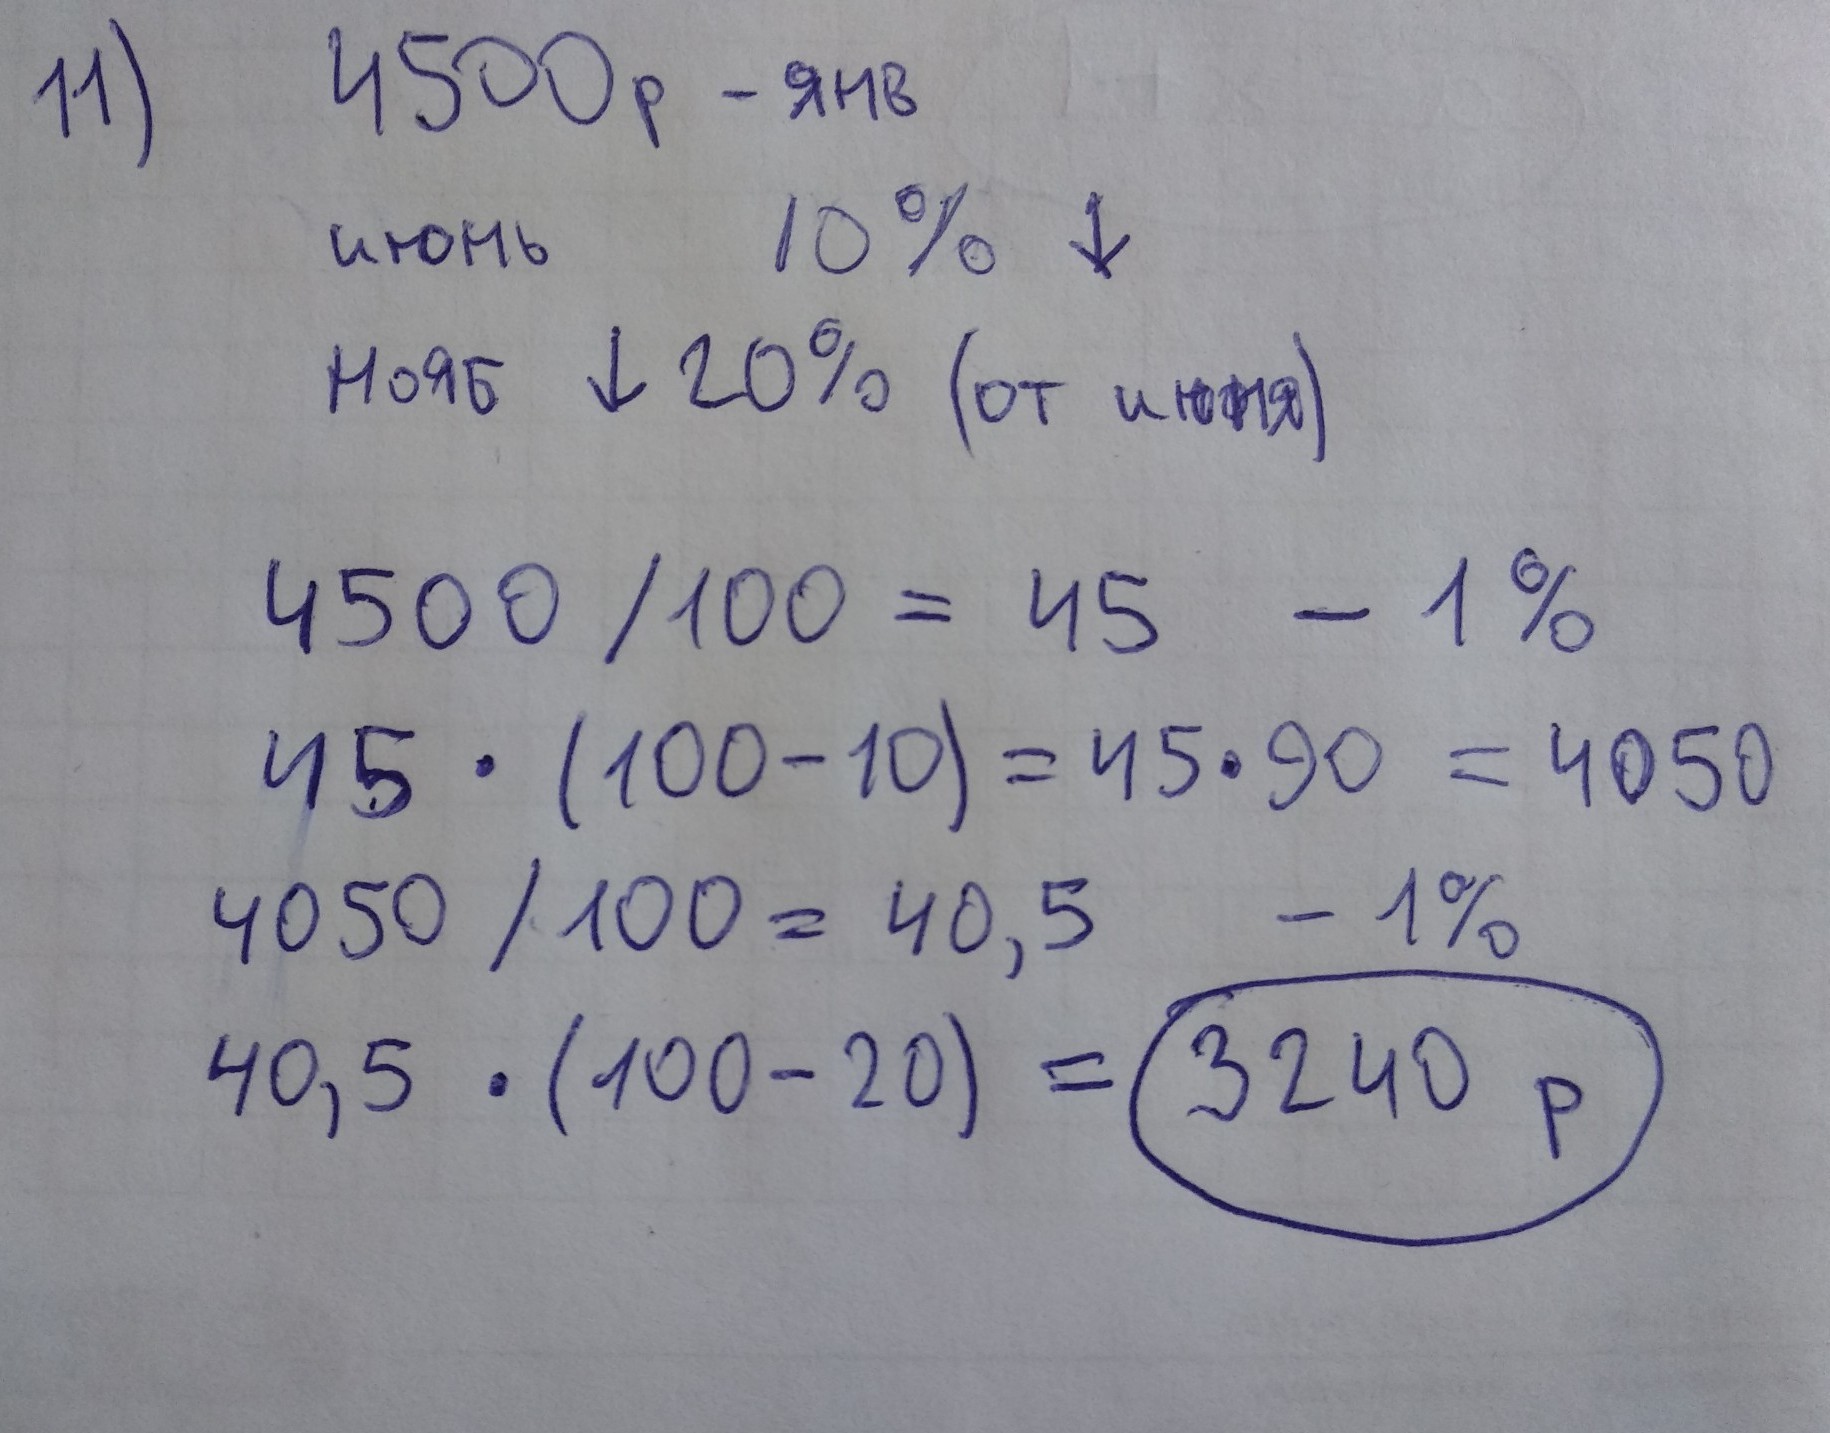 11) 4500р - янв
июнь 10% ↓
нояб ↓ 20% (от июня)
4500 / 100 = 45 - 1%
45 · (100-10) = 45·90 = 4050
4050 / 100 = 40,5 - 1%
40,5 · (100-20) = 3240 р